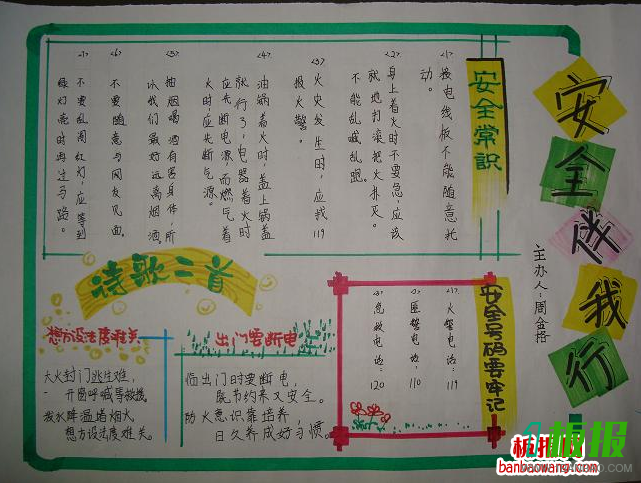 安全伴我行
主办人：周金格
安全常识
<1> 接电线板不能随意托
动。
<2> 身上着火时不要急，应该
就地打滚把火扑灭。
不能乱喊乱跑。
<3> 火灾发生时，应拨119
报火警。
<4> 油锅着火时，盖上锅盖
就行了，电器着火时
应先断电源，而燃气着
火时应先断气源。
<5> 抽烟喝酒有害身体，所
以我们最好远离烟酒。
<6> 不要随意与网友见面。
<7> 不要乱闯红灯，应等到
绿灯亮时再过马路。
安全号码要牢记
<1> 火警电话：119
<2> 匪警电话：110
<3> 急救电话：120
诗歌二首
想方设法度难关
大火封门逃生难，
开窗呼喊等救援
泼水降温堵烟火
想方设法度难关。
出门要断电
临出门时要断电，
既节约来又安全。
防火意识靠培养，
日久养成好习惯。
板报网
banbaowang.com
板报